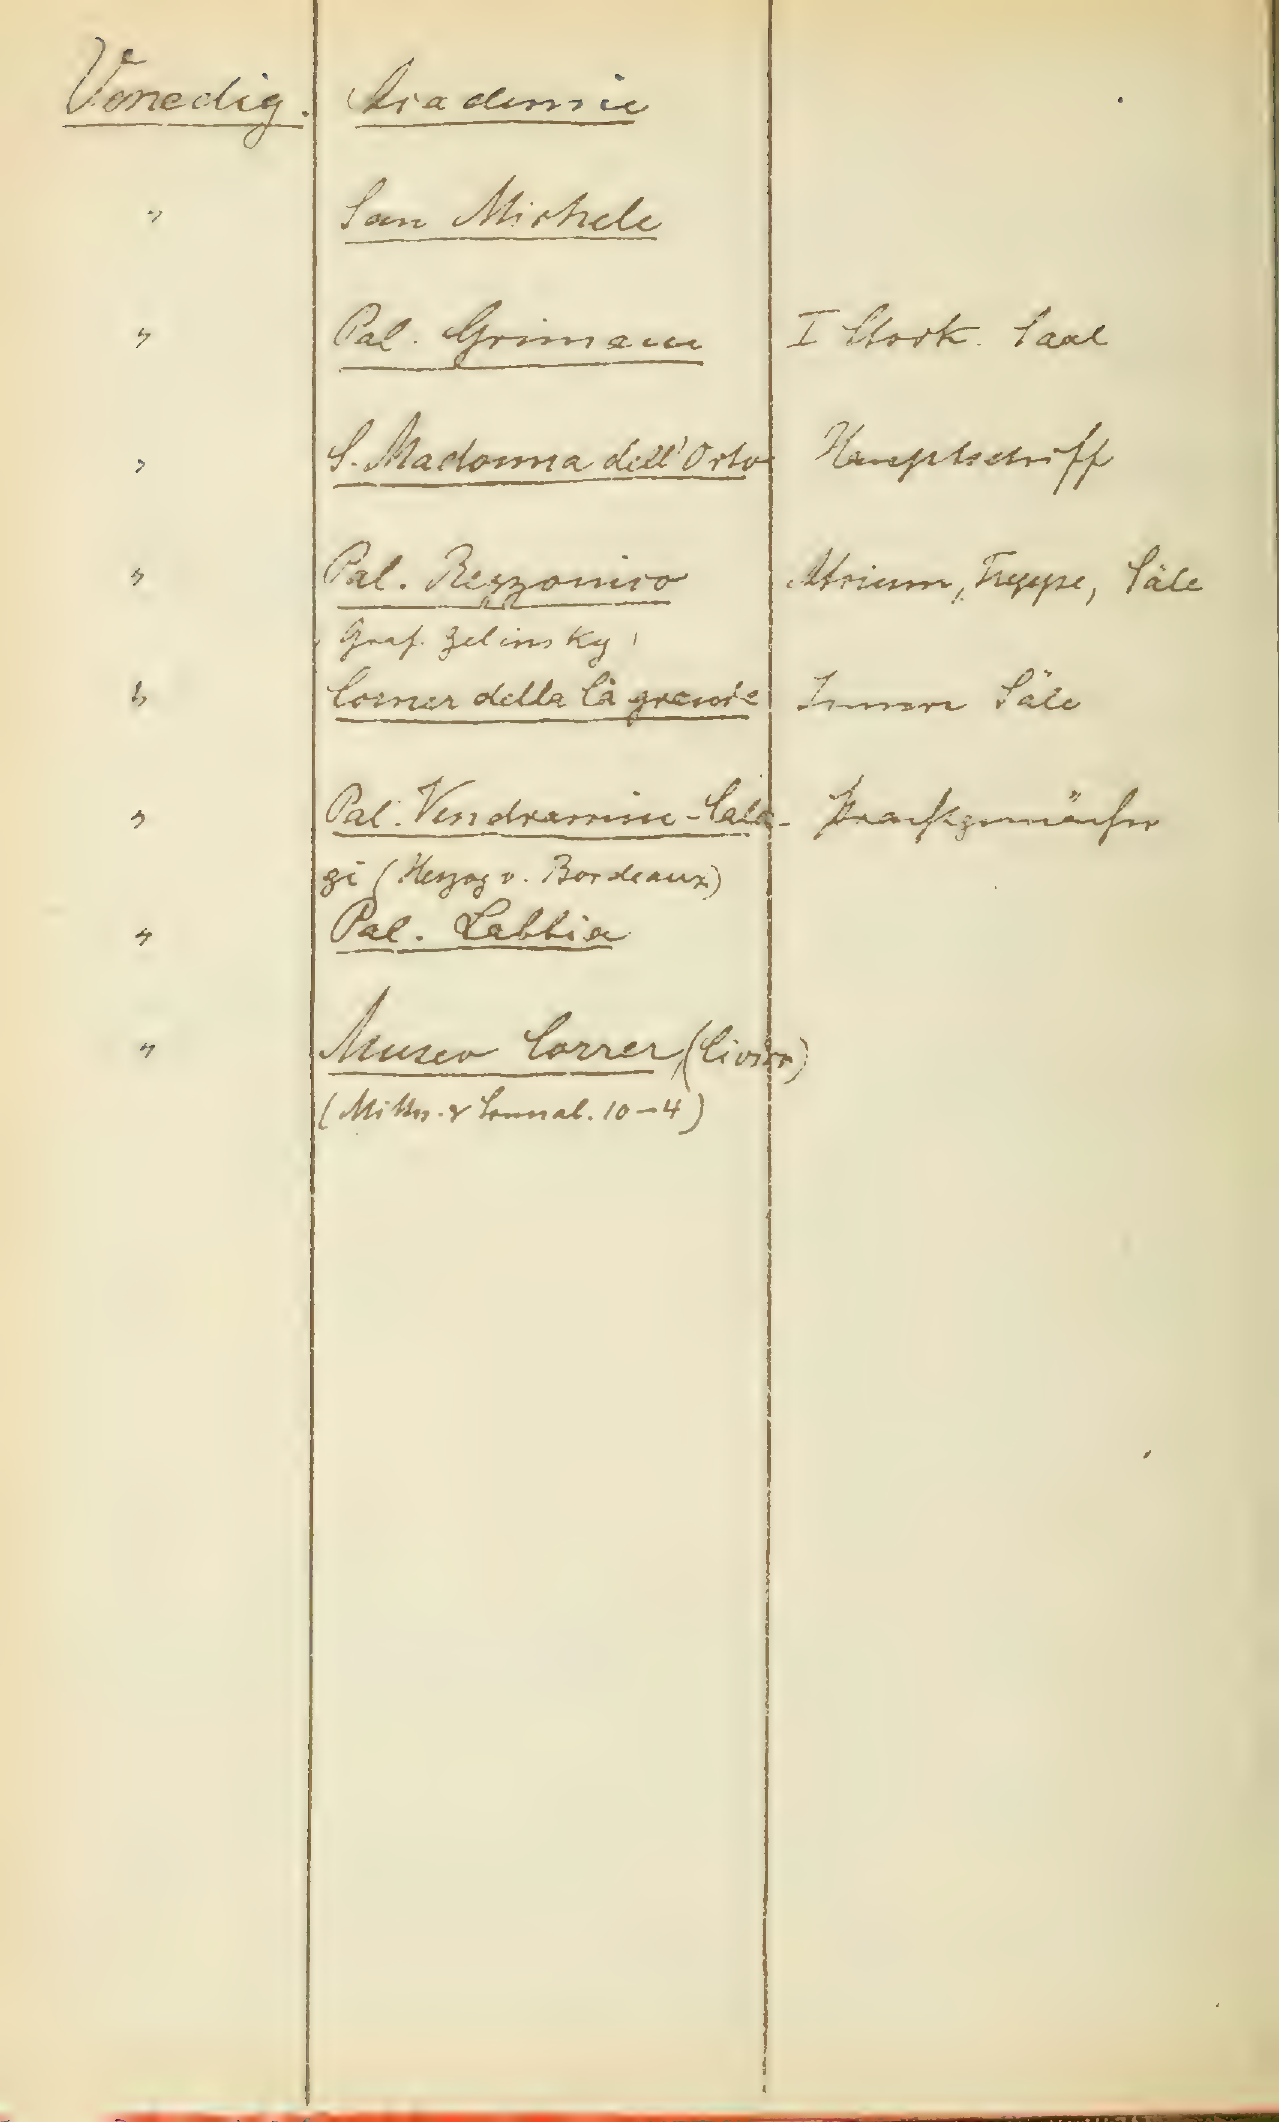 Venedig. Academie
" San Michele
" Pal. Grimani I Stock. Saal
" S. Madonna dell'Orto Hauptschiff
" Pal. Rezzonico Atrium, Treppe, Säle
Graf. Zelinsky
" Corner della Cà grande Innere Säle
" Pal. Vendramin-Cale- Prachtgemächer
gi (Herzog v. Bordeaux)
" Pal. Labbia
" Museo Correr, (Civico)
(Mittw. & Sonnab. 10-4)